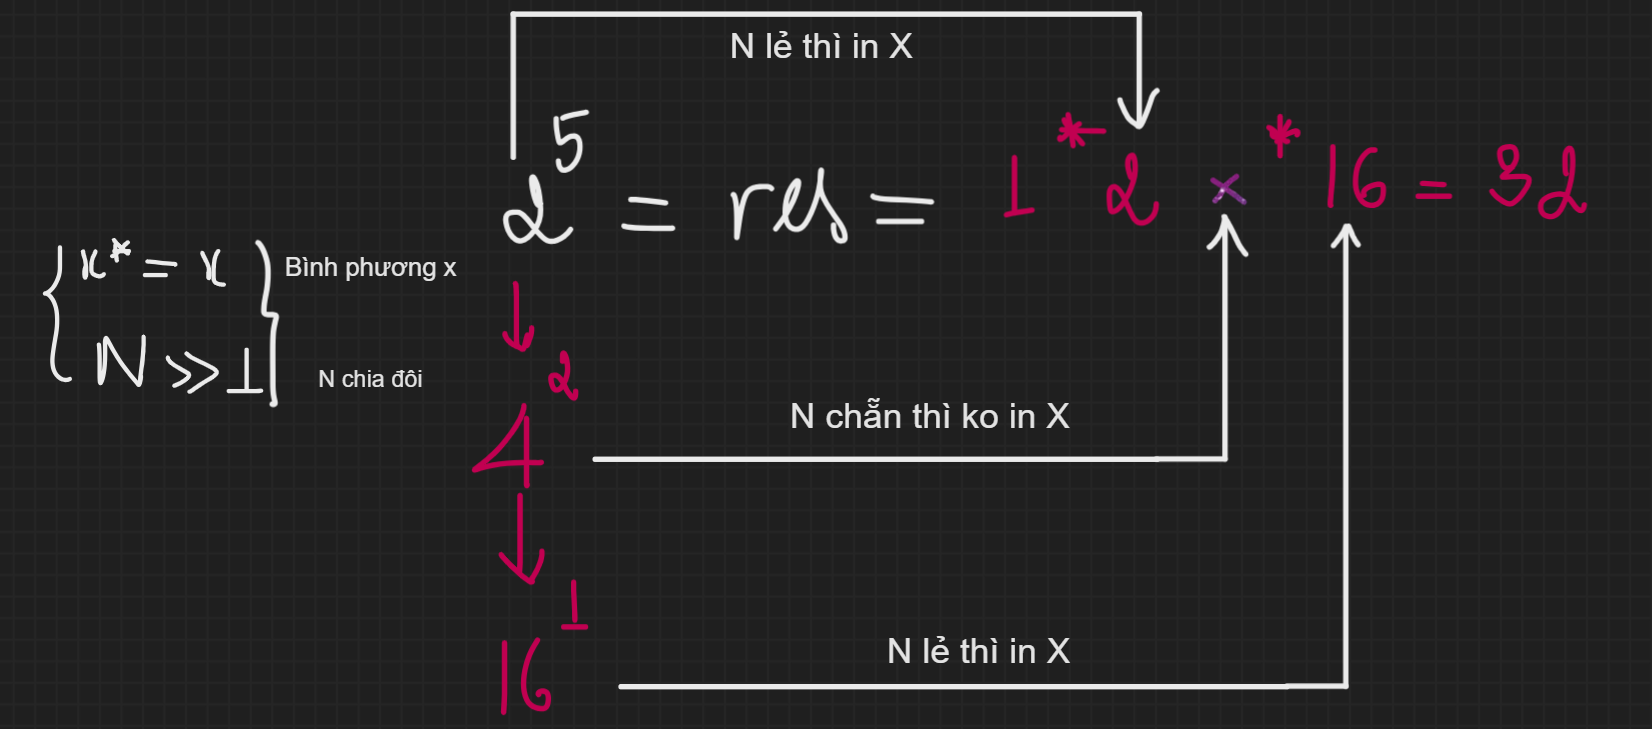 N lẻ thì in X
2^5 = res = 1 * 2 × * 16 = 32
x * = x
Bình phương x
N >> 1
N chia đôi
4^2
N chẵn thì ko in X
16^1
N lẻ thì in X